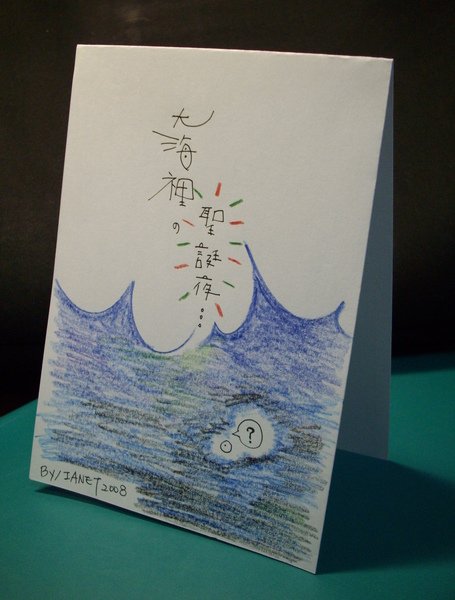 大海裡の
聖誕夜...
?
BY/JANET 2008